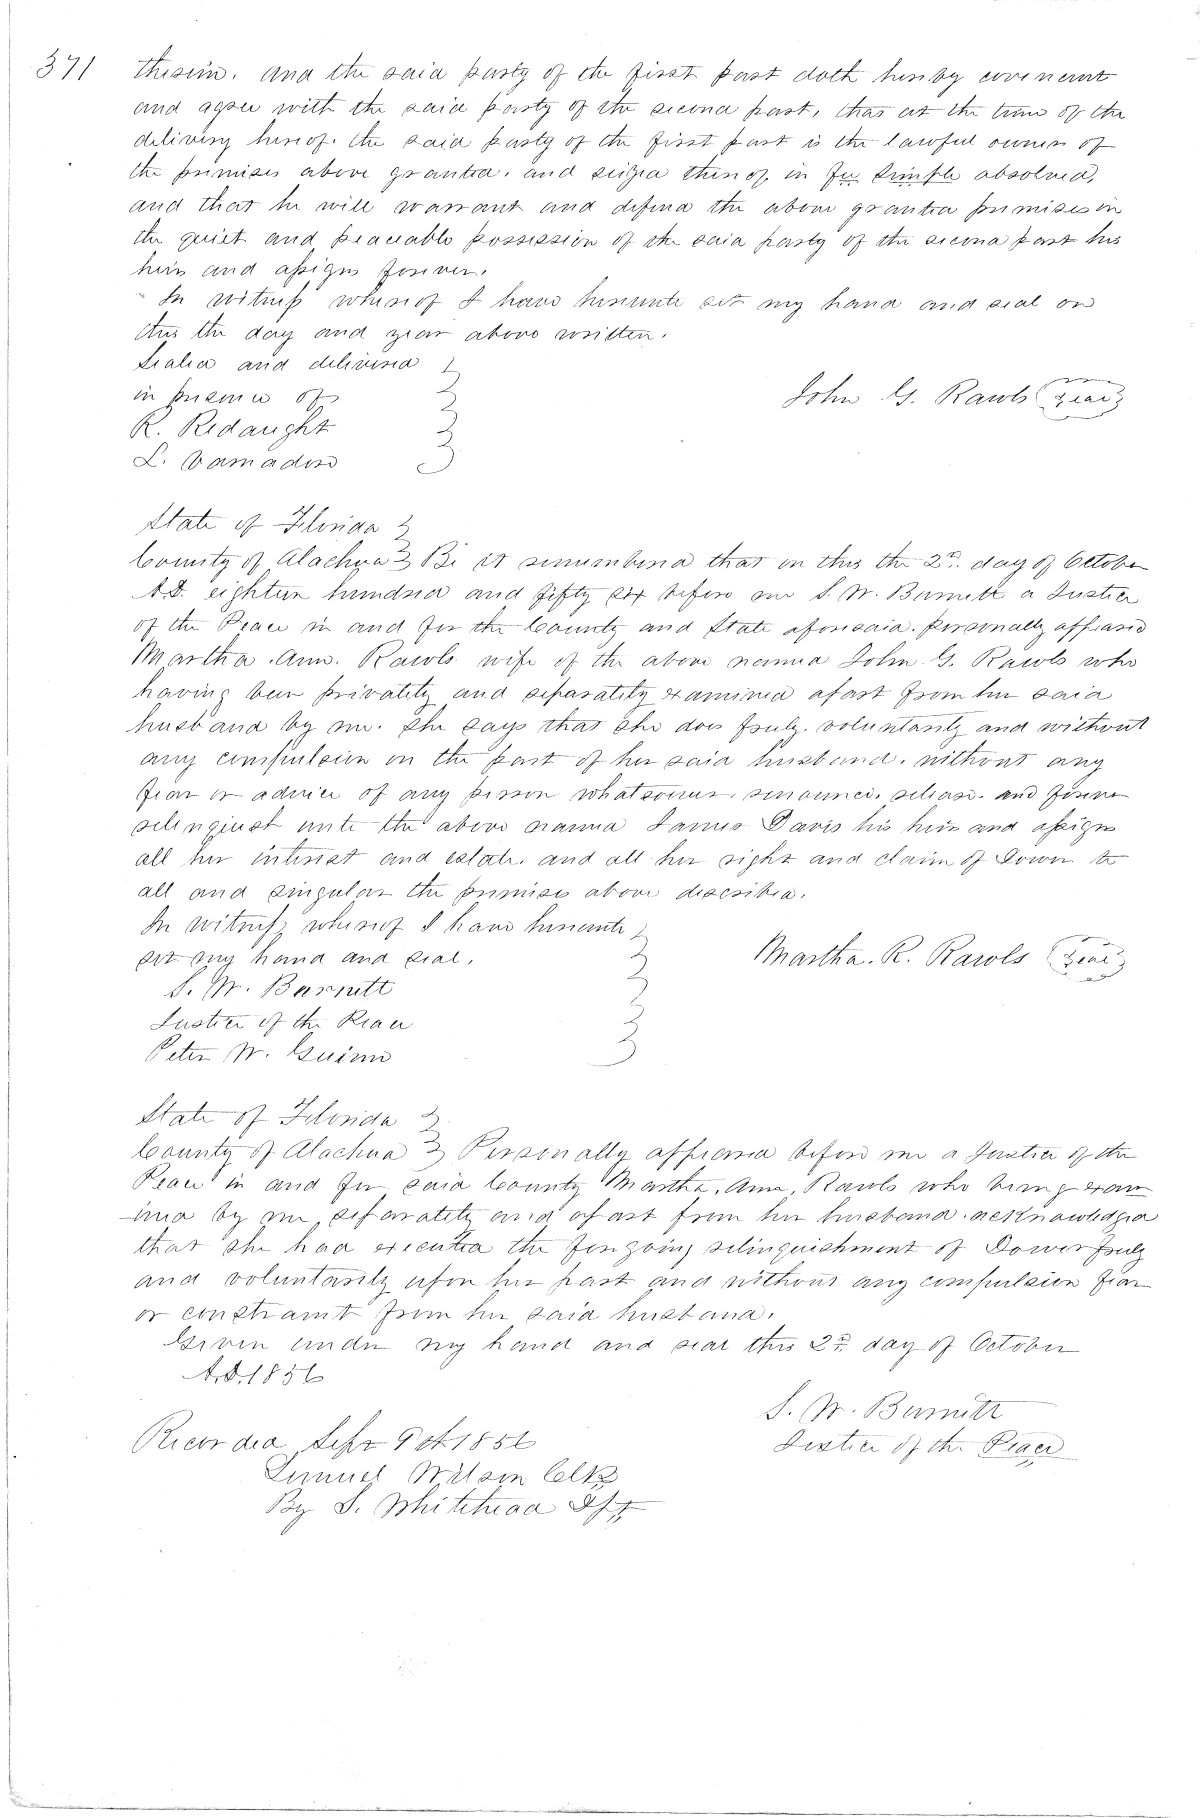 371
therein. and the said party of the first part doth hereby covenant
and agree with the said party of the second part, that at the time of the
delivery hereof. the said party of the first part is the lawful owner of
the premises above granted. and seized thereof, in Fee Simple absolved,
and that he will warrant and defend the above granted premises in
the quiet and peaceable possession of the said party of the second part his
heirs and assigns forever.
In witness whereof I have hereunto set my hand and seal on
this the day and year above written.
Sealed and delivered
in presence of
John G. Rawls (Seal)
R. Redaught
State of Florida
County of Alachua Be it remembered that on this the 2nd. day of October
A.D. eighteen hundred and fifty six before me S. W. Burnett a Justice
of the Peace in and for the County and State aforesaid. personally appeared
Martha. Ann. Rawls wife of the above named John G. Rawls who
having been privately and separately examined apart from her said
husband by me. She says that she does freely. voluntarily and without
any compulsion on the part of her said husband. without any
fear or advice of any person whatsoever. renounce. release. and forever
relinquish unto the above named James Davis his heirs and assigns
all her interest and estate. and all her right and claim of Dower to
all and singular the premises above described.
In witness, whereof I have hereunto
set my hand and seal.
Martha. R. Rawls (Seal)
S. W. Burnett
Justice of the Peace
Peter W. Guinn
State of Florida
County of Alachua Personally appeared before me a Justice of the
Peace in and for said County Martha. Ann, Rawls who being exam
-ined by me, separately and apart from her husband. acknowledged
that she had executed the foregoing relinquishment of Dower freely
and voluntarily upon her part and without any compulsion fear
or constraint from her said husband.
Given under my hand and seal this 2nd. day of October
A.D. 1856
S. W. Burnett
Justice of the Peace
Recorded Sept 9th 1856
Lemuel Wilson Clk
By S. Whitehead